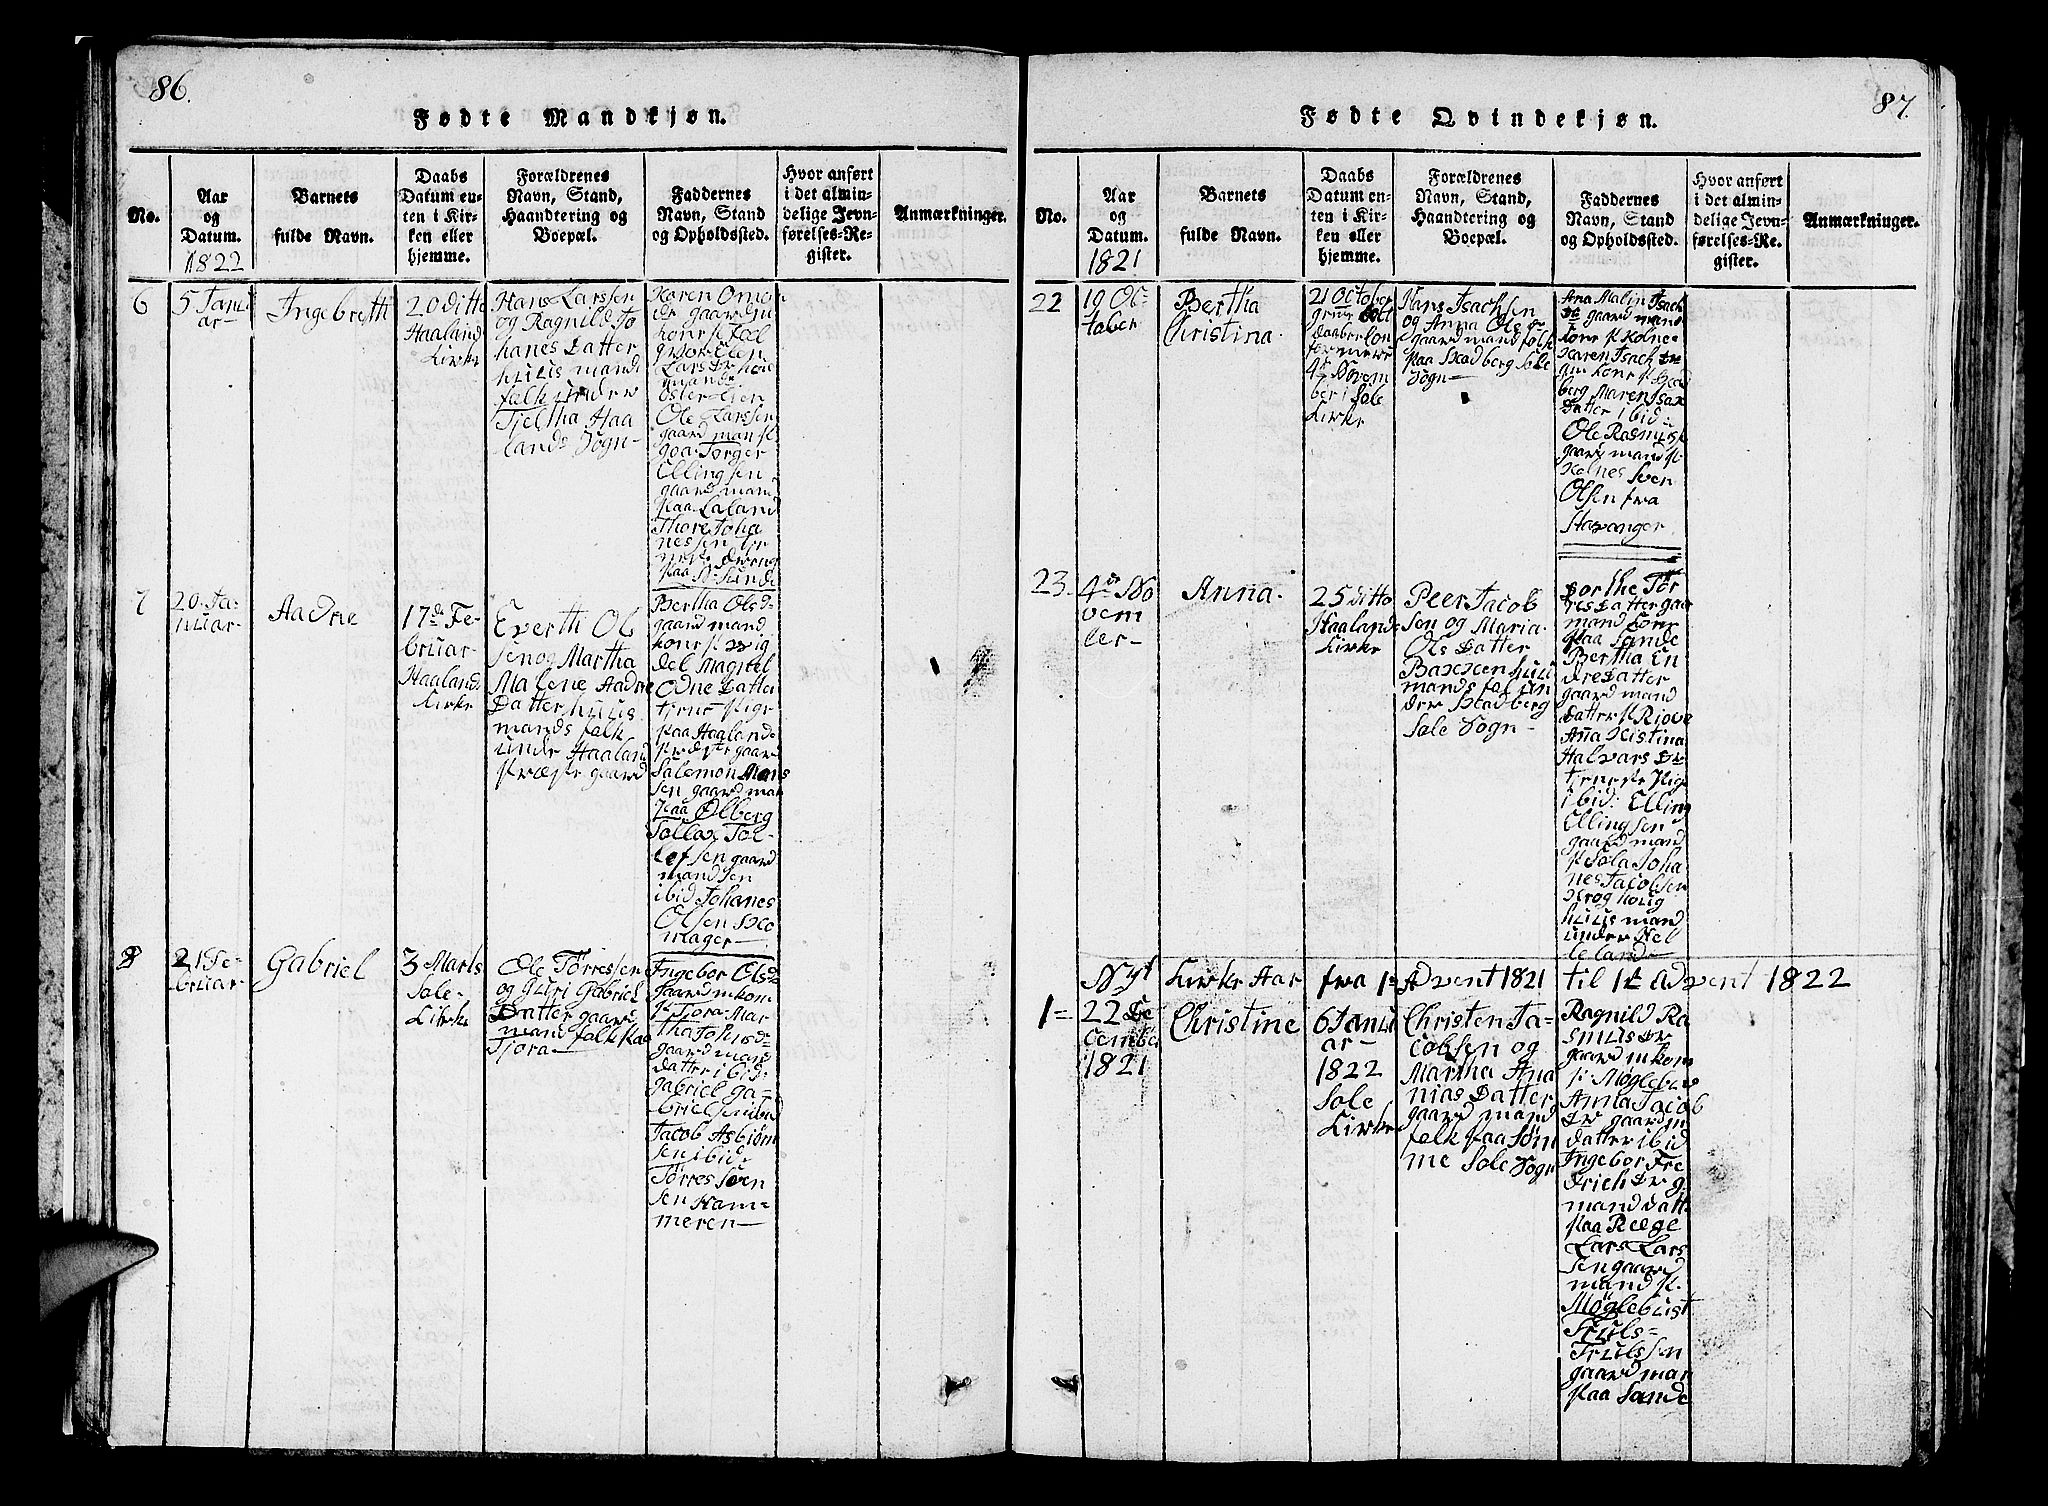 86.
Fødte Mandkjøn.
No.
Aar
og
Datum.
1822
Barnets
fulde Navn.
Daabs
Datum en-
ten i Kir-
ken eller
hjemme.
Forældrenes
Navn, Stand,
Haandtering og
Boepæl.
Faddernes
Navn, Stand
og Opholdssted.
Hvor anført
i det almin-
delige Jevn-
førelses-Re-
gister.
Anmærkninger.
6
5 Janu
ar
Ingebreth
20 ditto
Haaland
Kirke
Hans Larssen
og Ragnild Jo
hanes Datter
huus mand
falk under
Tjeltha Haa
lands Sogn
Karen
gaardm
Ellen
Lars Dr kone
Ole Larssen
gaard man p
goa Torger
Ellingsen
gaard man
paa Laland
Thore Joha
nessen
paa
7
20 Ja-
nuar
Aadne
17de Fe-
bruar
Haaland
Kirke
Everth Ol
sen og Martha
Malene Aadne
Datter huus
mands falk
under Haaland
præste gaard
Bertha Olsd
gaard mand
kone
del Magrel
Odne Datter
paa Haaland
præste gaar
Salemon Mons
sen gaard man
paa Ølberg
Tollax Tol-
lefsen gaard
mand sen
ibid Johanes
Olsen Sko
mager
8
21 Fe-
bruar
Gabriel
3 Marts
Sole
Kirke
Ole Tørressen
og Guri Gabriel
Datter gaard
mand falk paa
Tjora
Ingebor Olsd
gaardmkom
p Tjora Mar
tha Johnsd
gaard mand
datter ibid
gabriel ga-
brielsen ibid
Jacob Asbiørn
sen ibid
Tørres Sven
sen Ham-
meren
87.
Fødte Qvindekjøn.
No.
Aar
og
Datum.
1821
Barnets
fulde Navn.
Daabs
Datum en-
ten i Kir-
ken eller
hjemme.
Forældrenes
Navn, Stand,
Haandtering og
Boepæl.
Faddernes
Navn, Stand
og Opholdssted.
Hvor anført
i det almin-
delige Jevn-
førelses-Re-
gister.
Anmærkninger.
22
19 Oc-
tober
Bertha
Christina
21 October
4de Novem
ber i Sole
Kirke
Hans Isachsen
og Anna Ols Dr
gaard mand falk
paa Skadberg Sole
Sogn
Ana Malin Isach
Dr gaard mand
kone p Kolne
Karen Isach Dr
gm kone p Skad
berg Maren Isax
Datter ibid
Ole Rasmus
gaard mand p
Kolnes Sven
Olsen fra
Stavanger
23.
4de No
vem
ber
Anna.
25 ditto
Haaland
Kirke
Peer Jacob
sen og Maria
Ols Datter
Baxxen huus
mands falk un
der Skadberg
Sole Sogn
Borthe Tør
res Datter gaar
mand kone
paa Sande
Bertha En
dre Datter
gaard mand
datter p Risve
Ana Kistina
Halvars Dr
tjeneste Pige
ibid: Elling
Ellingsen
gaard mand
p Sola Joha
nes Jacobsen
huus mand
under Mel
leland
Nyt Kirke Aar fra 1= Advent 1821 til 1t Advent 1822
1=
22 De
cember
1821
Christine
6 Janu
ar
1822
Sole
Kirke
Christen Ja-
cobsen og
Martha Ana
nias Datter
gaard mand
falk paa Søm
me Sole Sogn
Ragnild Ra
smus Dr
gaard mkom
p Møglebust
Anna Jacob
Dr gaardm
datter ibid
Ingebor Fre
drich Dr g
mand datt
paa Reege
Lars Lars
sen gaard
mand p
Møglebust
Truls
Trulssen
gaard man
paa Sande